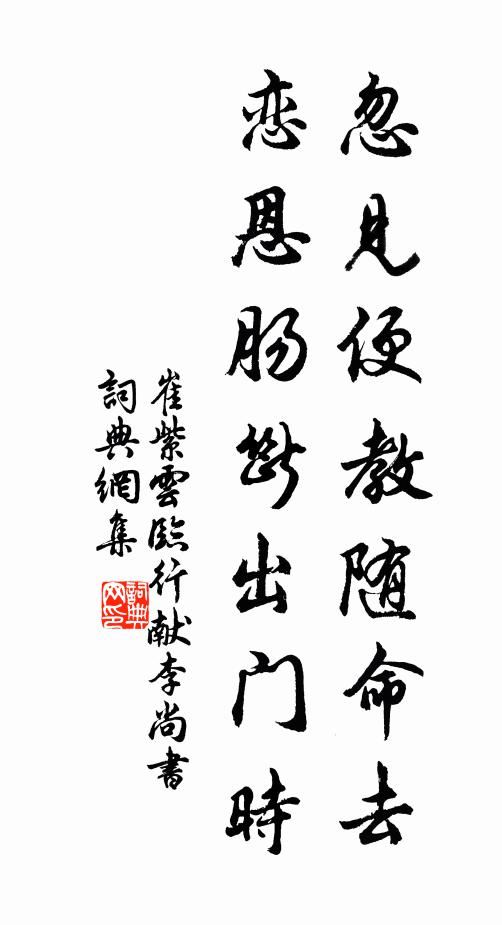 忽見便教随命去
恋恩肠斷出门時
崔紫雲臨行献李尚書
詞典網集
詞典网印